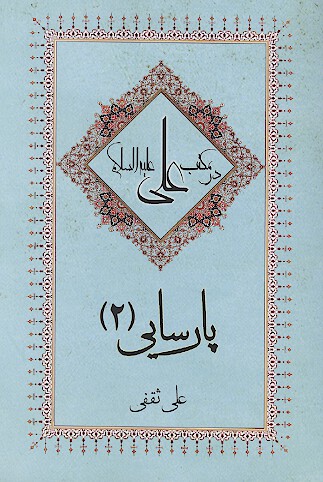 در مکتب علی علیه‌السلام
پارسایی (۲)
علی ثقفی